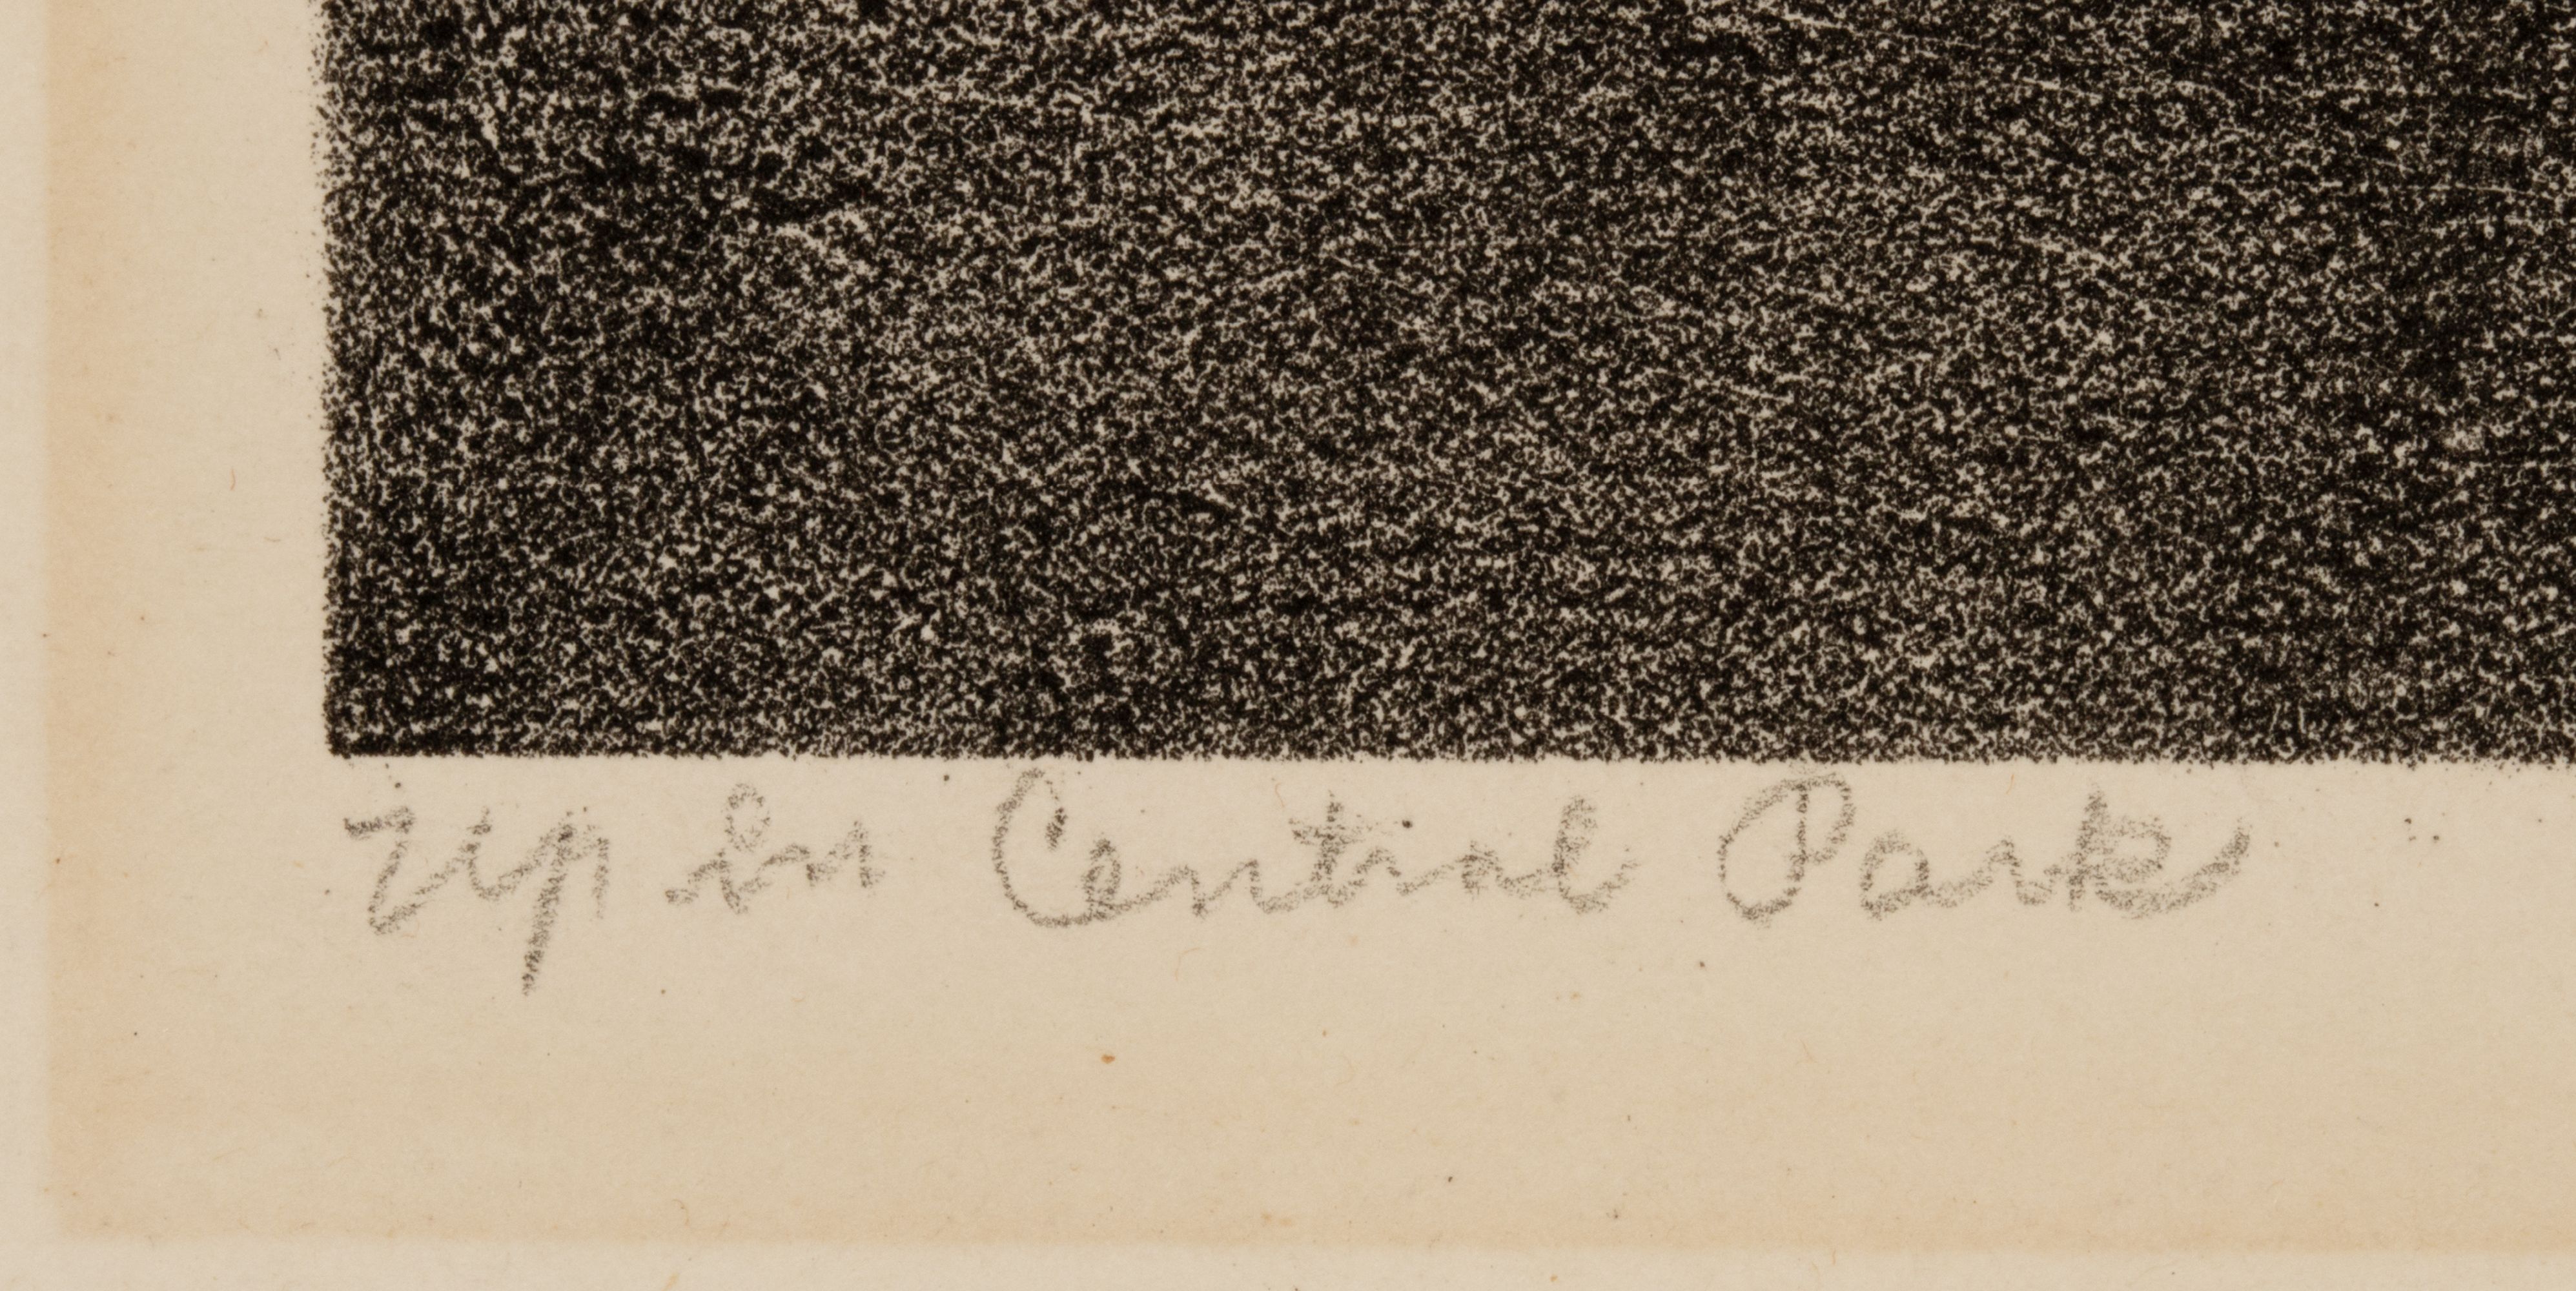 Up in Central Park